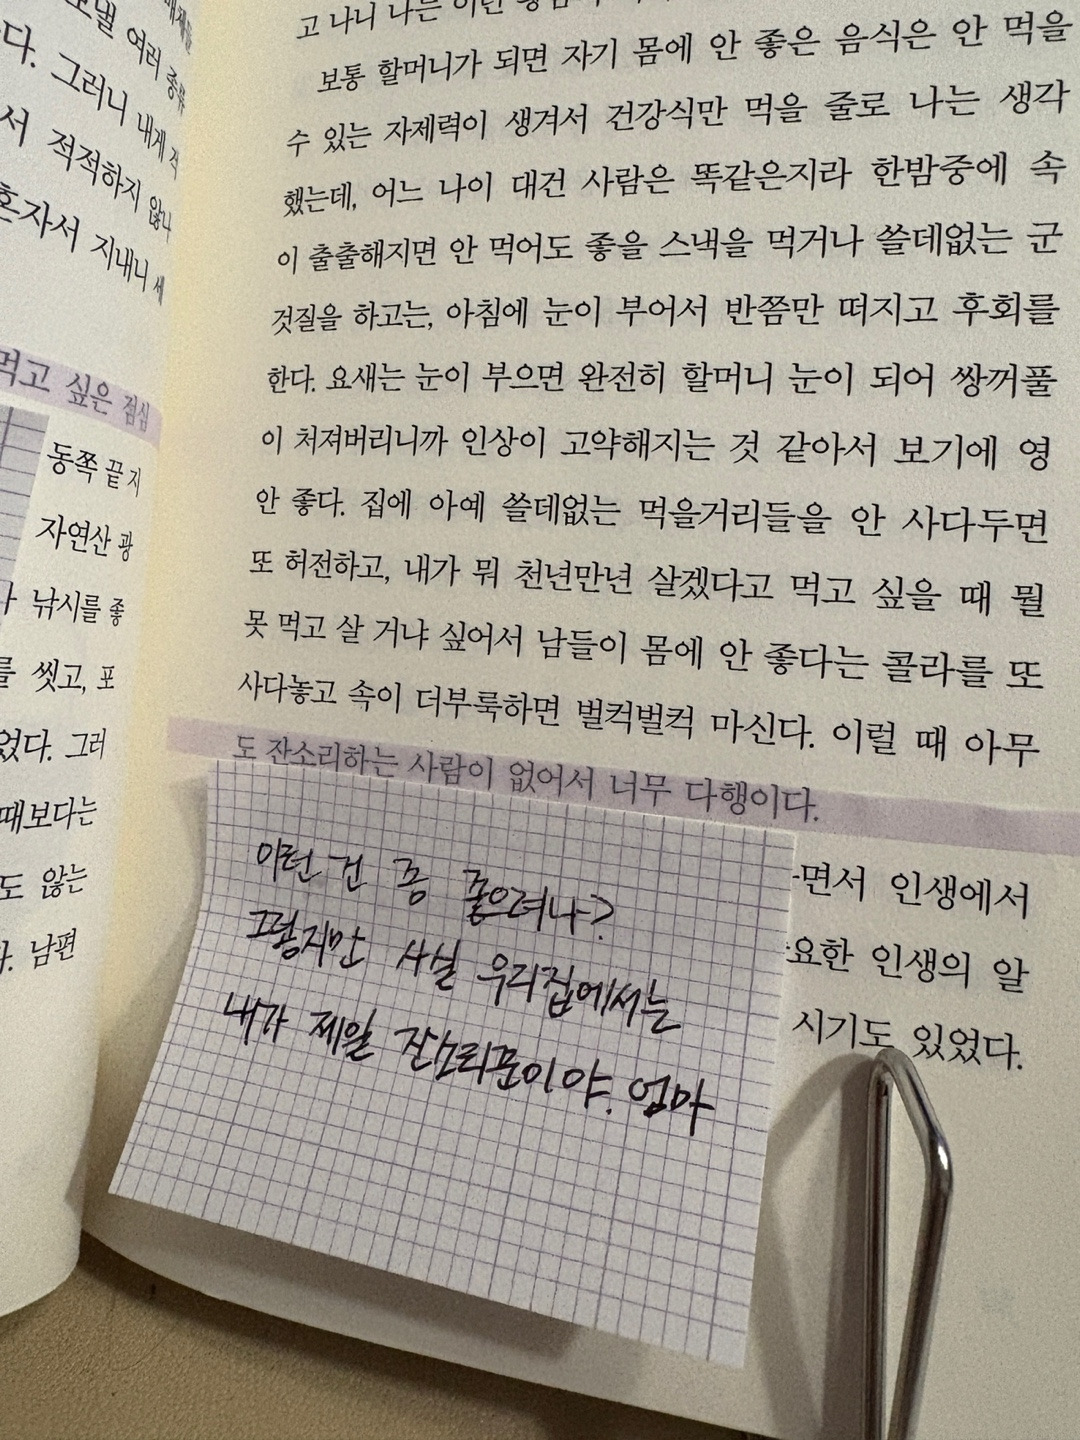 서 적적하지 않
혼자서 지내니 세
먹고 싶은 점심
동쪽 끝 지
자연산 광
낚시를 좋
를 씻고, 포
었다. 그러
때보다는
도 않는
남편
보통 할머니가 되면 자기 몸에 안 좋은 음식은 안 먹을
수 있는 자제력이 생겨서 건강식만 먹을 줄로 나는 생각
했는데, 어느 나이 대건 사람은 똑같은지라 한밤중에 속
이 출출해지면 안 먹어도 좋을 스낵을 먹거나 쓸데없는 군
것질을 하고는, 아침에 눈이 부어서 반쯤만 떠지고 후회를
한다. 요새는 눈이 부으면 완전히 할머니 눈이 되어 쌍꺼풀
이 처져버리니까 인상이 고약해지는 것 같아서 보기에 영
안 좋다. 집에 아예 쓸데없는 먹을거리들을 안 사다두면
또 허전하고, 내가 뭐 천년만년 살겠다고 먹고 싶을 때 뭘
못 먹고 살 거냐 싶어서 남들이 몸에 안 좋다는 콜라를 또
사다놓고 속이 더부룩하면 벌컥벌컥 마신다. 이럴 때 아무
도 잔소리하는 사람이 없어서 너무 다행이다.
이런 건 좀 좋으려나?
그렇지만 사실 우리집에서는
내가 제일 잔소리꾼이야. 엄마
면서 인생에서
요한 인생의 알
시기도 있었다.